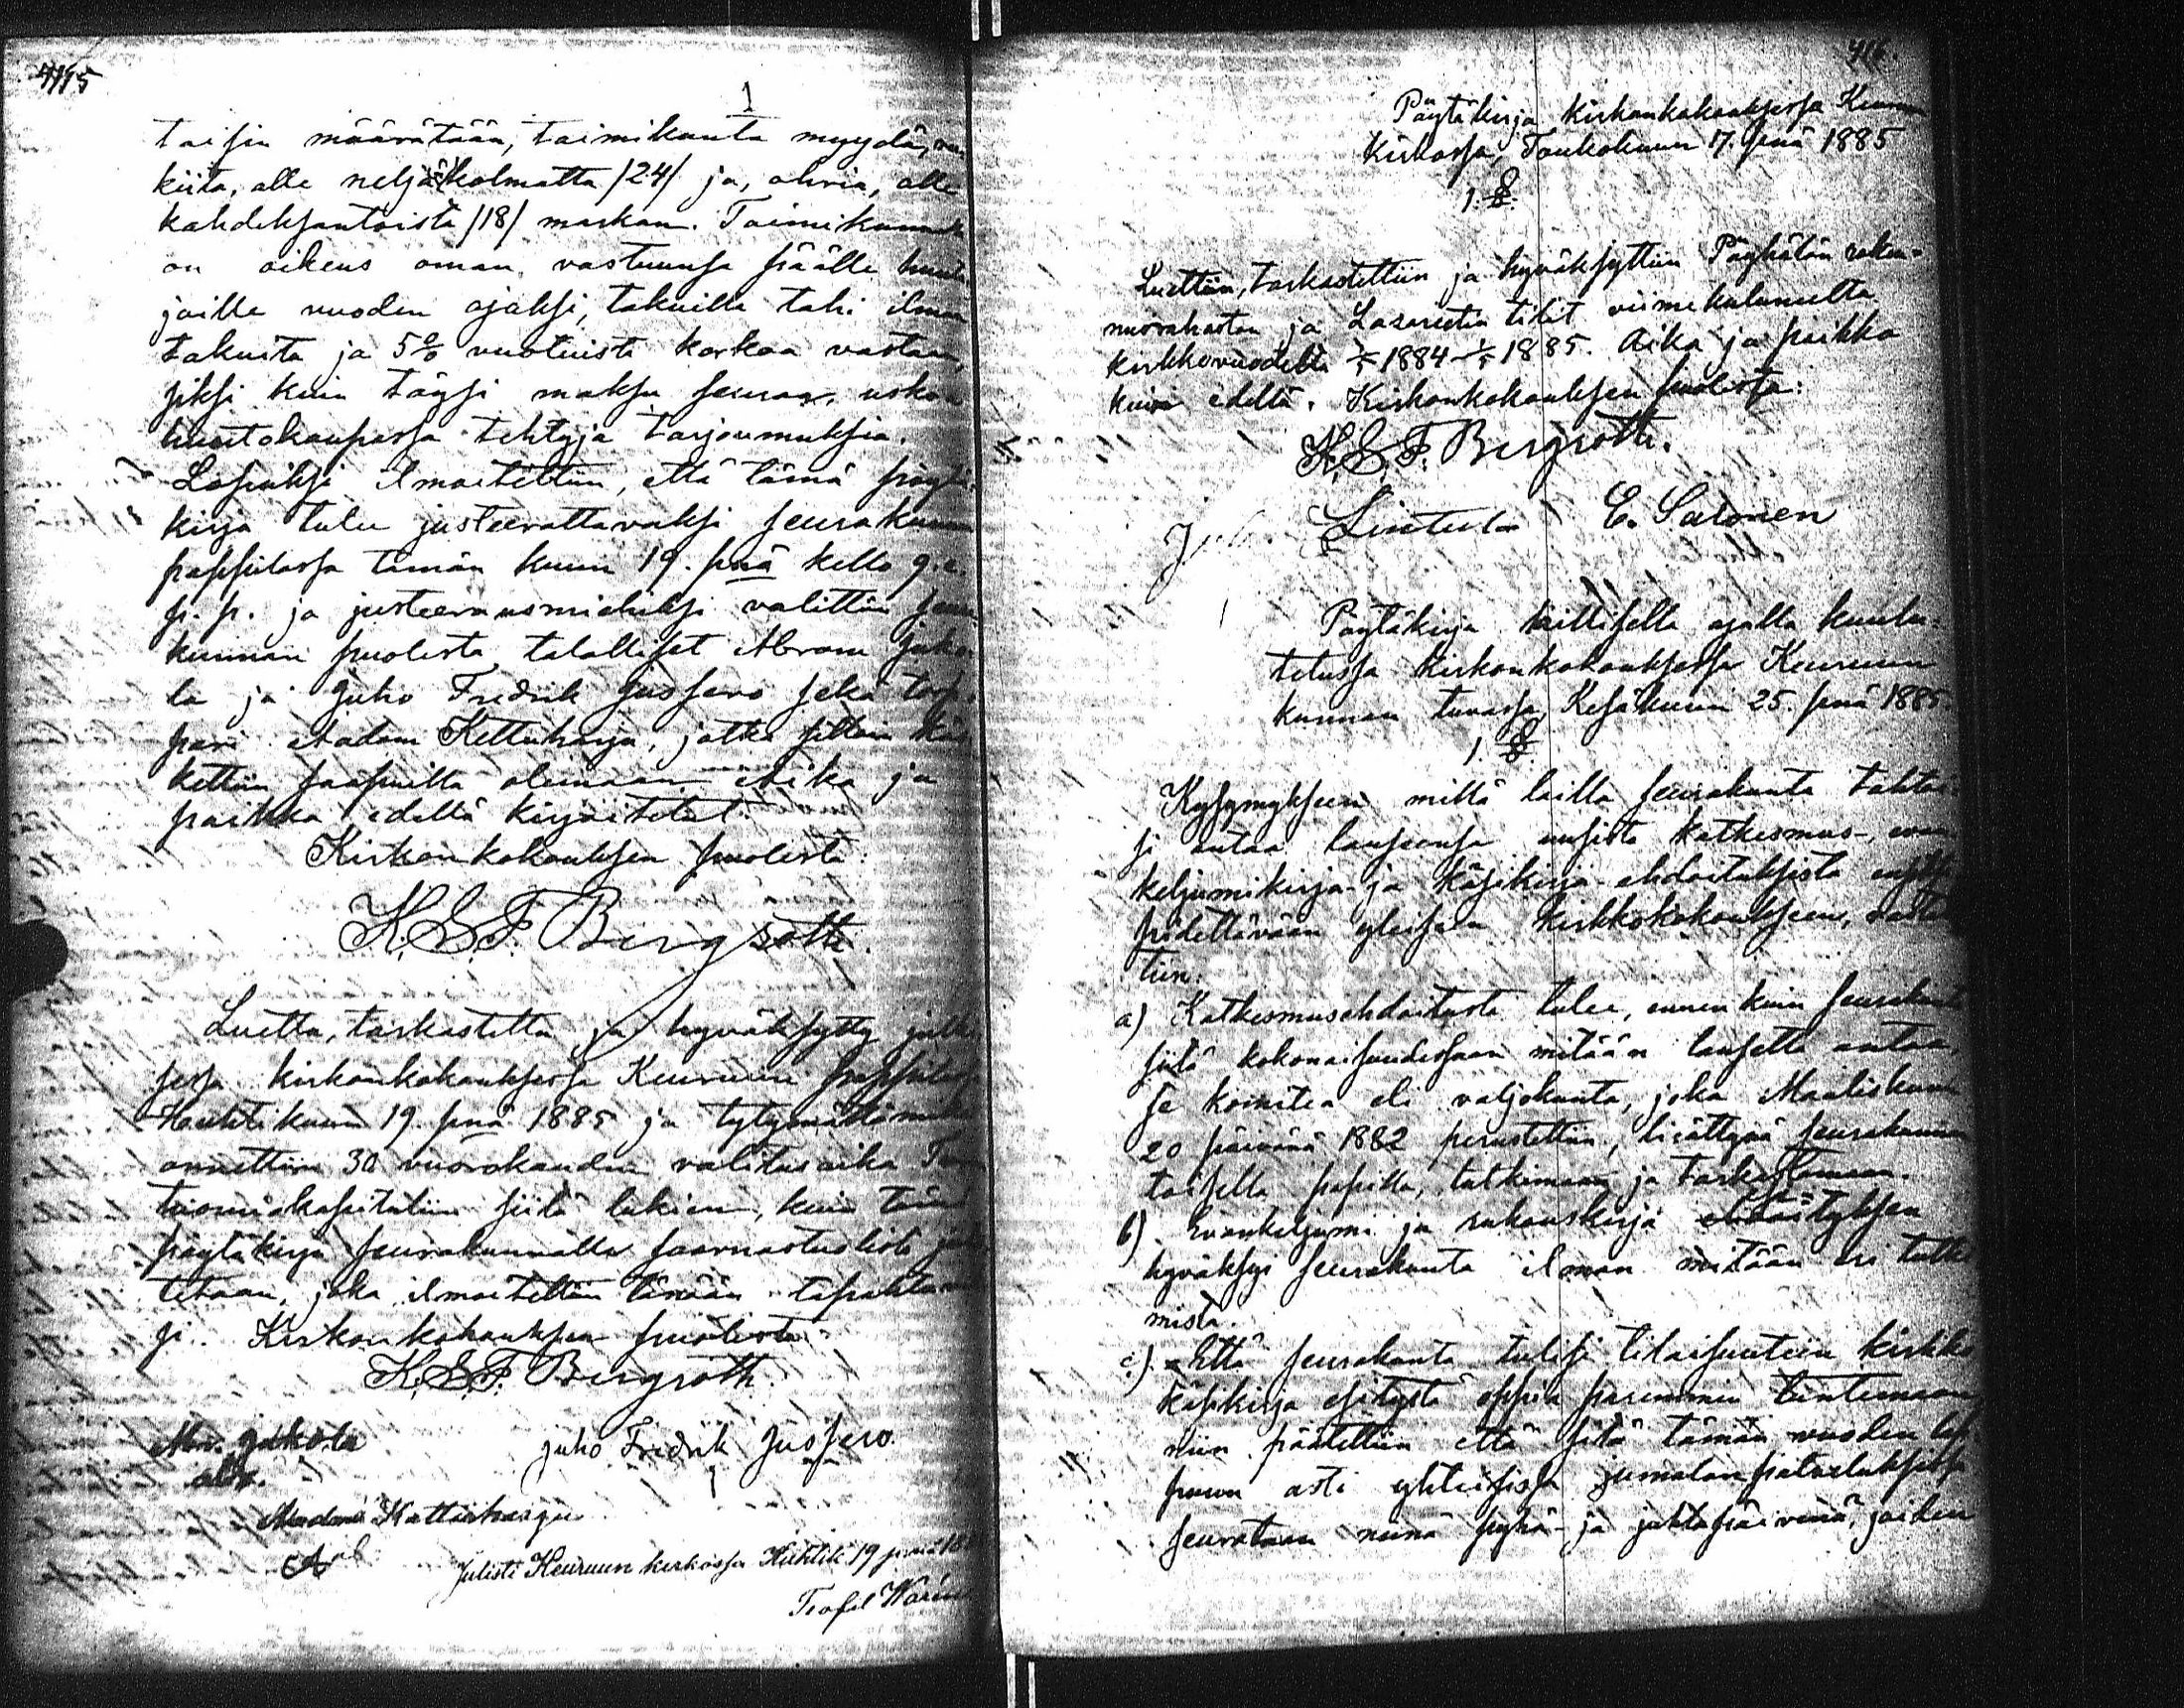 415
1
taisin määrätään, toimikunta myydä, ru-
kiita, alle neljäkolmatta /24/ ja, ohria, alle
kahdeksantoista /18/ markan. Toimikunnalla
on oikeus oman vastuunsa päälle huuta-
jaille vuoden ajaksi, takuilla tahi ilman
takuita ja 5% vuotuista korkoa vastaan,
siksi kuin täysi maksu seuraa, uskoa
huutokaupassa tehtyjä tarjoumuksia.
Lopuksi ilmoitettiin, että tämä pöytä-
kirja tulee justeerattavaksi seurakunnan
pappilassa tämän kuun 19. pnä kello 9 e.
p. p. ja justeerausmiehiksi valittiin seura-
kunnan puolesta talolliset Abram Juko-
la ja Juho Fredrik Jussero sekä torp-
pari Aadam Kettuharju, jotka silloin käs-
kettiin saapuilla olemaan. Aika ja
paikka edellä kirjoitetut.
Kirkonkokouksen puolesta:
K. S. F. Bergroth.
Luettu, tarkastettu ja hyväksytty julki-
sessa kirkonkokouksessa Keuruun pappilassa
Huhtikuun 19. pnä 1885 ja tytymättömille
annettiin 30 vuorokauden valitusaika
tuomiokapituliin siitä lukien, kuin tämä
pöytäkirja seurakunnalle saarnastuolista
tetaan, joka ilmoitettiin tänään tapahtuvan
si. Kirkonkokouksen puolesta:
K. S. F. Bergroth.
Abr. Jukola Juho Fredrik Jussero.
Aadam Kettuharju
Julisti Keuruun kirkossa Huhtik. 19 pnä 18
Teofil
416.
Pöytäkirja kirkonkokouksessa Keuruun
Kirkossa, Toukokuun 17. pnä 1885
1. §.
Luettiin, tarkastettiin ja hyväksyttiin Pöyhölän raken-
nusrahaston ja Lazaretin tilit viimekuluneelta
kirkkovuodelta 1/5 1884–1/5 1885. Aika ja paikka
kuin edellä. Kirkonkokouksen puolesta:
K. S. F. Bergroth.
Lintula E. Salonen
Pöytäkirja laillisella ajalla kuulu-
tetussa kirkonkokouksessa Keuruun
kunnan tuvassa, Kesäkuun 25. pnä 1885.
1. §.
Kysymykseen millä lailla seurakunta tahtoi-
si antaa lausuntonsa uusista katkesmus-, evan-
keljumikirja- ja käsikirja-ehdoituksista ensiksi
pidettävään yleiseen kirkkokokoukseen, vastat-
tiin:
a) Katkesmusehdoitusta tulee, ennen kuin seurakunta
siitä kokonaisuudessaan mitään lausetta antaa,
se komitea eli valjokunta, joka Maaliskuun
20 päivänä 1882 perustettiin, lisättynä seurakunnan
toisella papilla, tutkimaan ja tarkastamaan.
b) Evankeljumi ja rukouskirja ehdoituksen
hyväksyi seurakunta ilman mitään eri tutki-
mista.
c) Että seurakunta tulisi tilaisuuteen kirkko
käsikirja esitystä oppia paremmin tuntemaan
niin päätettiin että sitä tämän vuoden lop-
puun asti yhteisissä jumalanpalveluksissa
seurataan niinä pyhä- ja juhlapäivinä, joiden